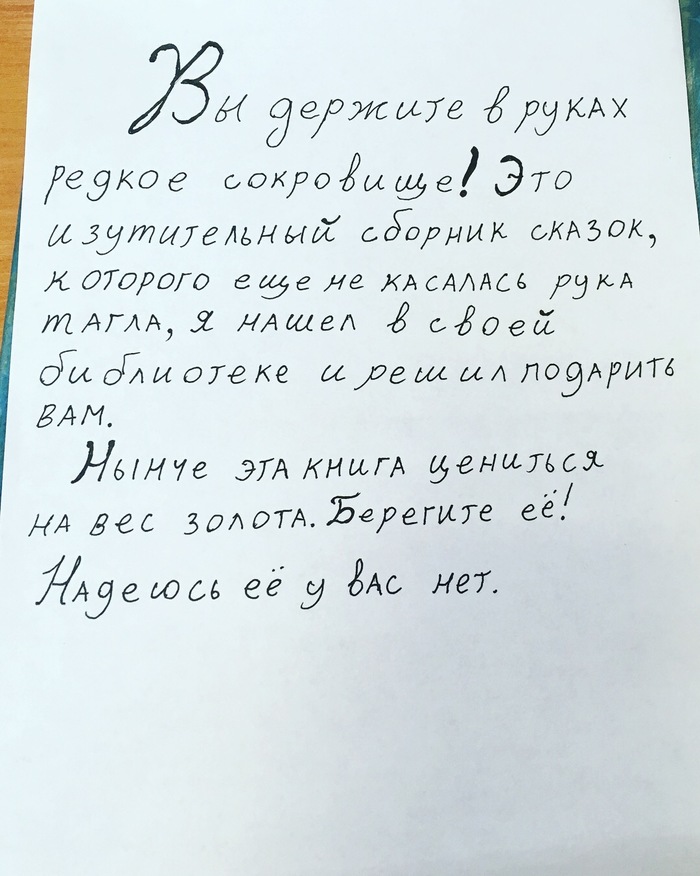 Вы держите в руках
редкое сокровище! Это
изумительный сборник сказок,
которого еще не касалась рука
магла, я нашел в своей
библиотеке и решил подарить
вам.
Нынче эта книга цениться
на вес золота. Берегите её!
Надеюсь её у вас нет.